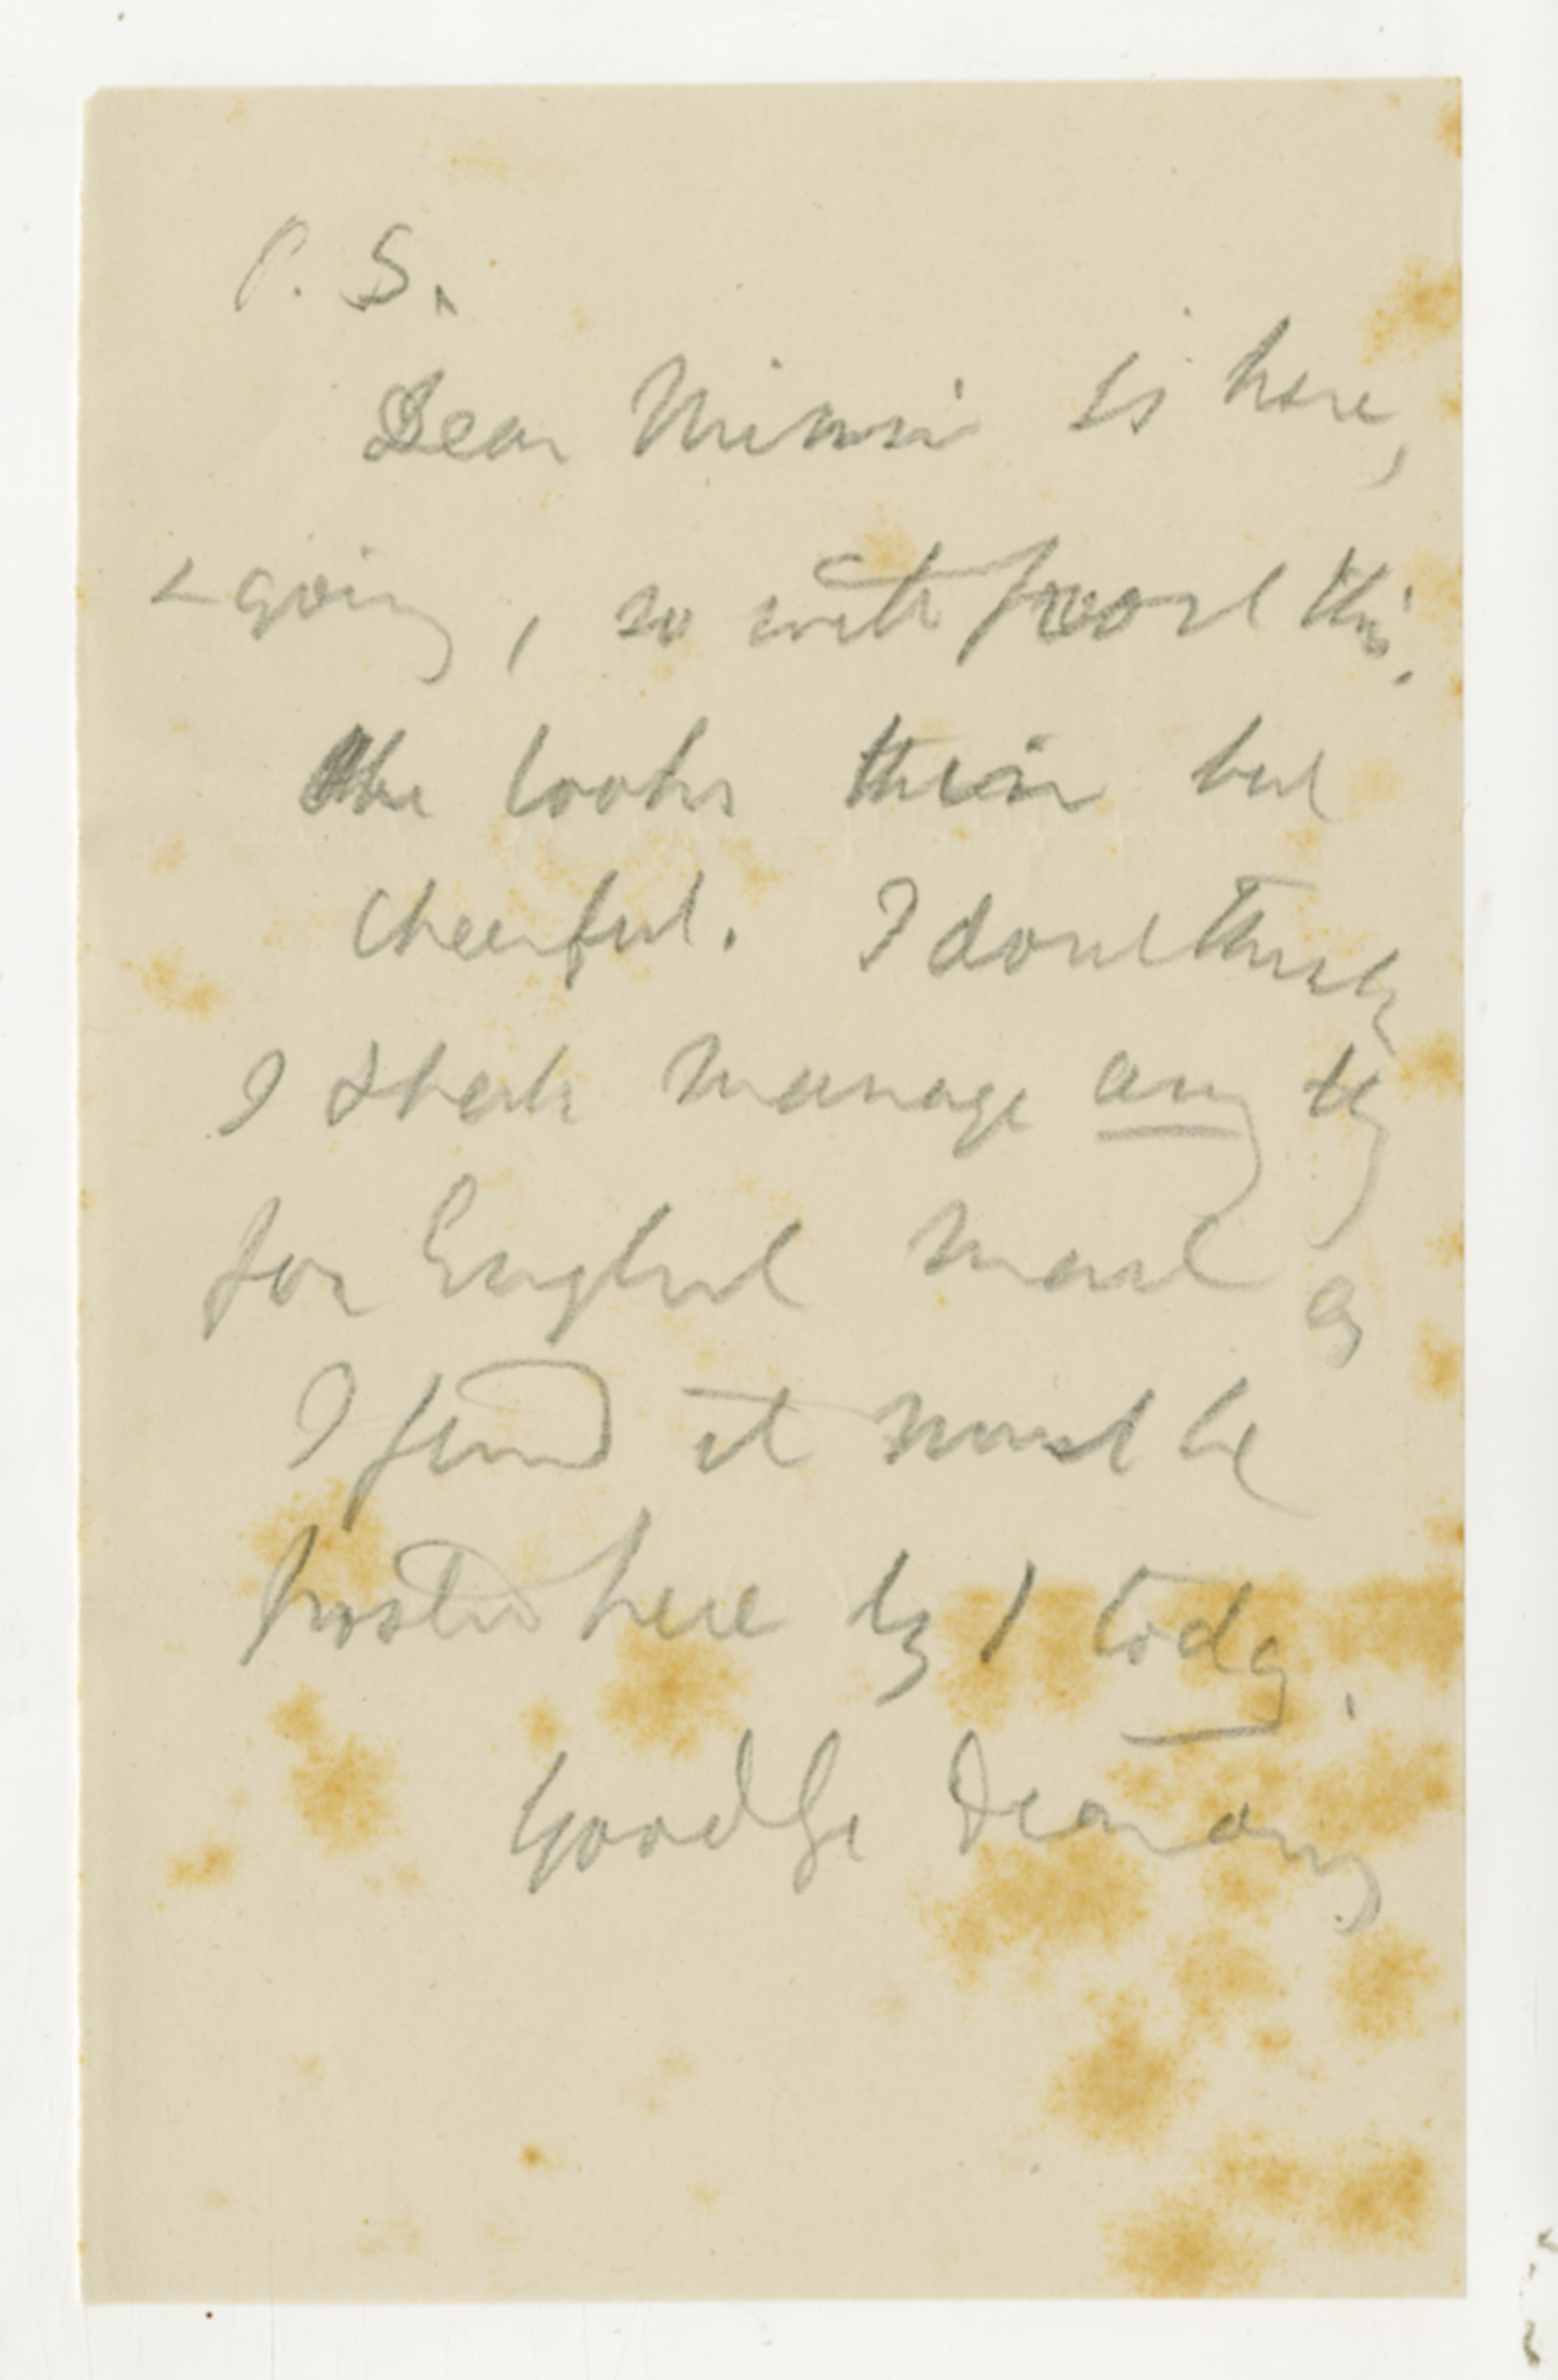 P. S.
Dear Minnie is here,
& going, so will post this.
She looks thin but
cheerful. I dont think
I shall manage any thg
for English mail as
I find it must be
posted here by 1 today.
Goodbye Dear